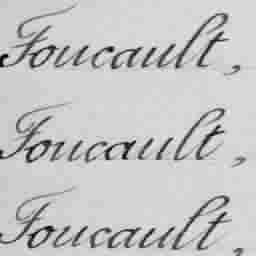 Foucault,
Foucault,
Foucault,